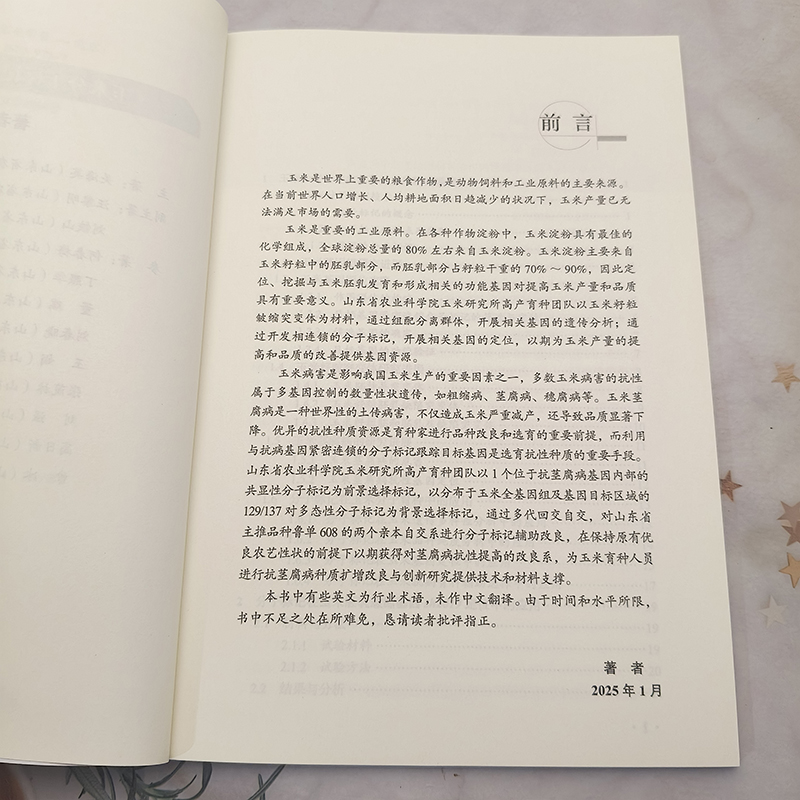 前言
玉米是世界上重要的粮食作物,是动物饲料和工业原料的主要来源。
在当前世界人口增长、人均耕地面积日趋减少的状况下，玉米产量已无
法满足市场的需要。
玉米是重要的工业原料。在各种作物淀粉中，玉米淀粉具有最佳的
化学组成，全球淀粉总量的 80% 左右来自玉米淀粉。玉米淀粉主要来自
玉米籽粒中的胚乳部分，而胚乳部分占籽粒干重的 70% ～ 90%，因此定
位、挖掘与玉米胚乳发育和形成相关的功能基因对提高玉米产量和品质
具有重要意义。山东省农业科学院玉米研究所高产育种团队以玉米籽粒
皱缩突变体为材料，通过组配分离群体，开展相关基因的遗传分析；通
过开发相连锁的分子标记，开展相关基因的定位，以期为玉米产量的提
高和品质的改善提供基因资源。
玉米病害是影响我国玉米生产的重要因素之一，多数玉米病害的抗性
属于多基因控制的数量性状遗传，如粗缩病、茎腐病、穗腐病等。玉米茎
腐病是一种世界性的土传病害，不仅造成玉米严重减产，还导致品质显著下
降。优异的抗性种质资源是育种家进行品种改良和选育的重要前提，而利用
与抗病基因紧密连锁的分子标记跟踪目标基因是选育抗性种质的重要手段。
山东省农业科学院玉米研究所高产育种团队以 1 个位于抗茎腐病基因内部的
共显性分子标记为前景选择标记，以分布于玉米全基因组及基因目标区域的
129/137 对多态性分子标记为背景选择标记，通过多代回交自交，对山东省
主推品种鲁单 608 的两个亲本自交系进行分子标记辅助改良，在保持原有优
良农艺性状的前提下以期获得对茎腐病抗性提高的改良系，为玉米育种人员
进行抗茎腐病种质扩增改良与创新研究提供技术和材料支撑。
本书中有些英文为行业术语，未作中文翻译。由于时间和水平所限，
书中不足之处在所难免，恳请读者批评指正。
著 者
2025 年 1 月